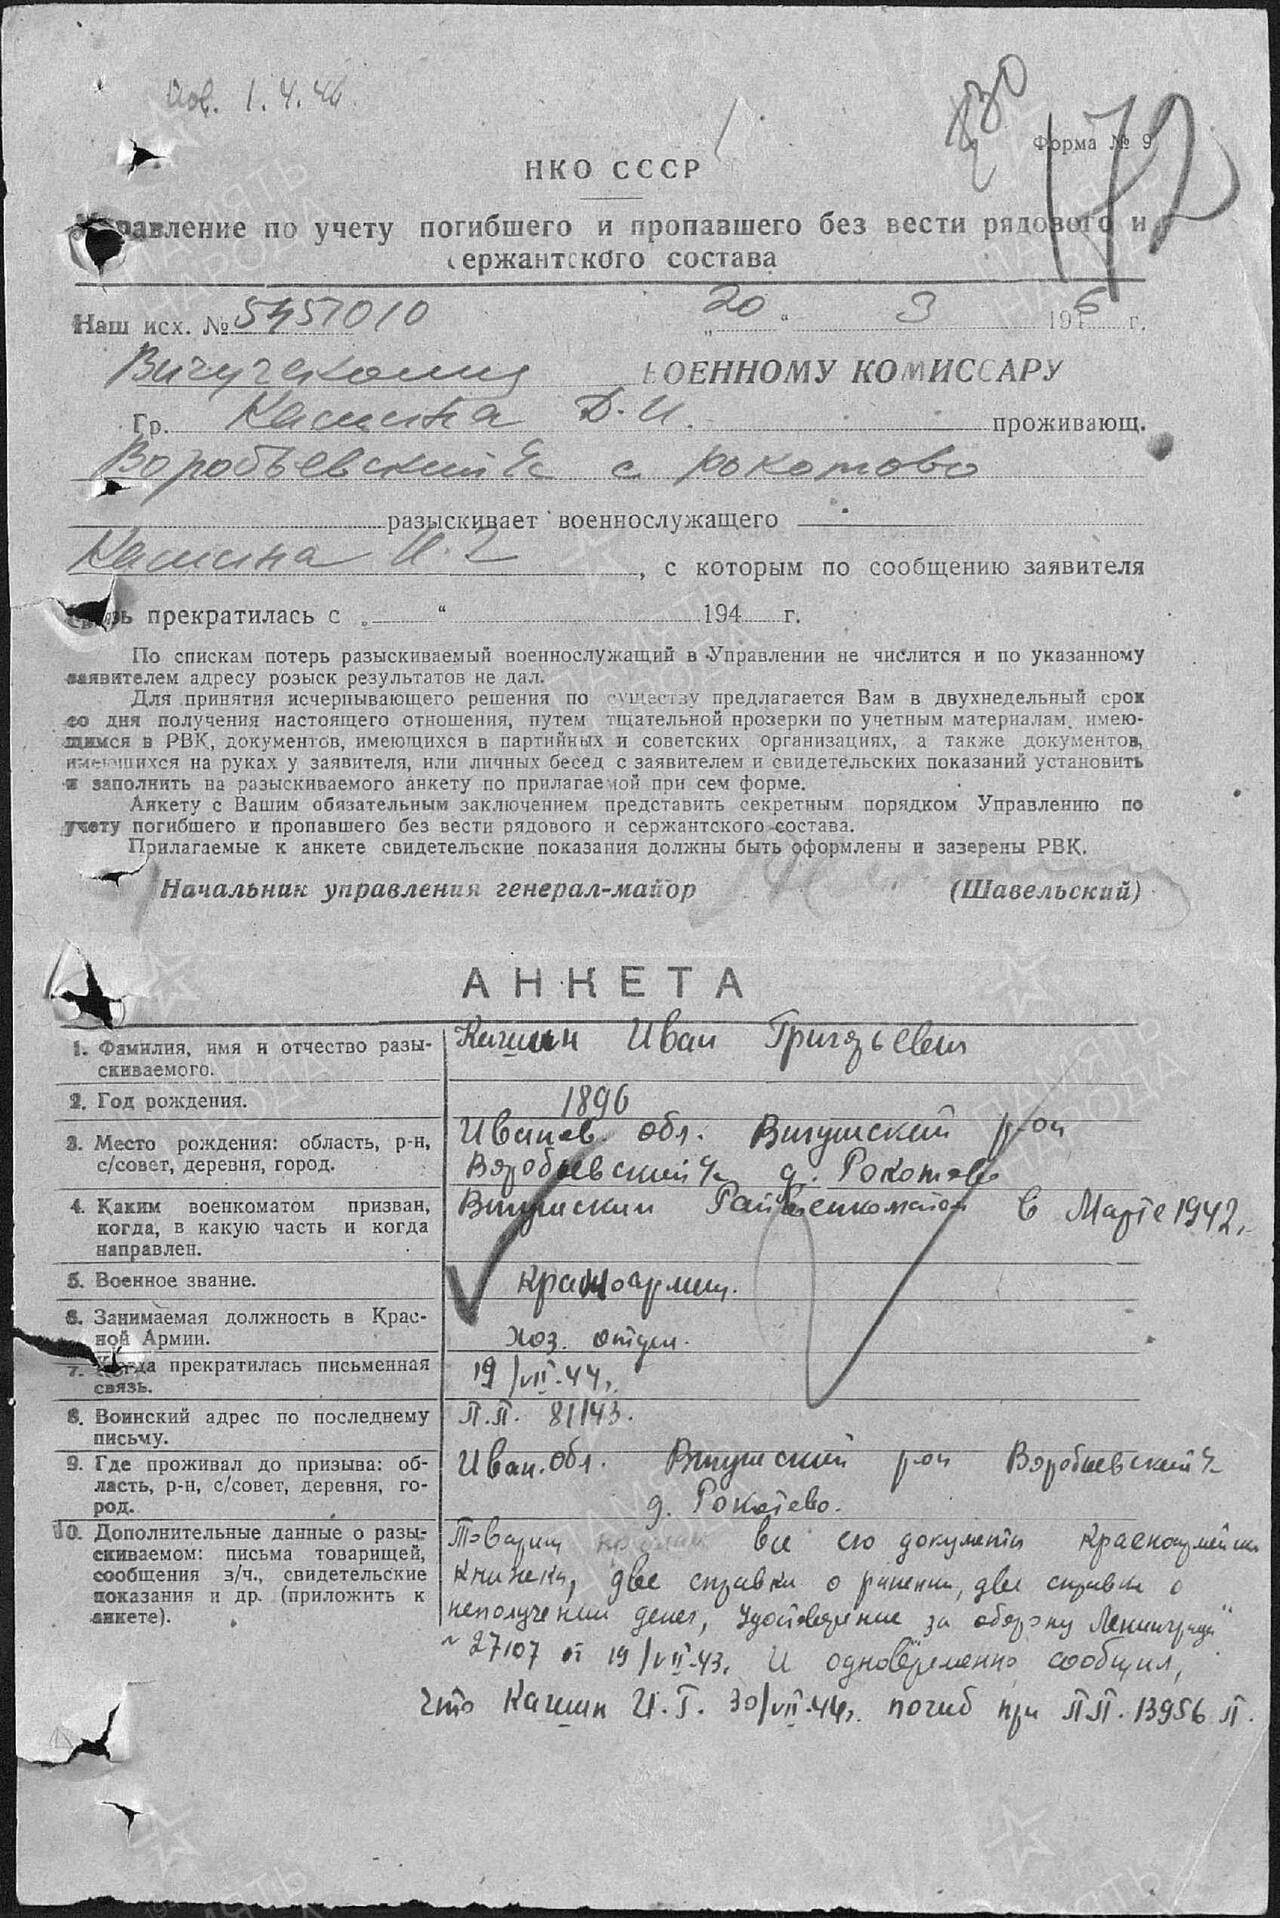 1.4.46
Форма № 9
172
НКО СССР
Управление по учету погибшего и пропавшего без вести рядового и
сержантского состава
Наш исх. № 5457010 „20" 3 1946 г.
Вичугскому ВОЕННОМУ КОМИССАРУ
Гр. Кашина Д.И. проживающ.
Воробьевский с/с с. Рокотово
разыскивает военнослужащего
Кашина И.Г., с которым по сообщению заявителя
связь прекратилась с „ " 194 г.
По спискам потерь разыскиваемый военнослужащий в Управлении не числится и по указанному
заявителем адресу розыск результатов не дал.
Для принятия исчерпывающего решения по существу предлагается Вам в двухнедельный срок
со дня получения настоящего отношения, путем тщательной проверки по учетным материалам, имею-
щимся в РВК, документов, имеющихся в партийных и советских организациях, а также документов,
имеющихся на руках у заявителя, или личных бесед с заявителем и свидетельских показаний установить
и заполнить на разыскиваемого анкету по прилагаемой при сем форме.
Анкету с Вашим обязательным заключением представить секретным порядком Управлению по
учету погибшего и пропавшего без вести рядового и сержантского состава.
Прилагаемые к анкете свидетельские показания должны быть оформлены и заверены РВК.
Начальник управления генерал-майор (Шавельский)
АНКЕТА
1. Фамилия, имя и отчество разы-
скиваемого.
Кашин Иван Григорьевич
2. Год рождения.
1896
3. Место рождения: область, р-н,
с/совет, деревня, город.
Иванов. обл. Вичугский р-он
Воробьевский с/с д. Рокотово
4. Каким военкоматом призван,
когда, в какую часть и когда
направлен.
Вичугским Райвоенкоматом в Марте 1942 г.
5. Военное звание.
Красноармеец.
6. Занимаемая должность в Крас-
ной Армии.
хоз. отдел.
7. Когда прекратилась письменная
связь.
19/VII-44 г.
8. Воинский адрес по последнему
письму.
П.П. 81143.
9. Где проживал до призыва: об-
ласть, р-н, с/совет, деревня, го-
род.
Иван. обл. Вичугский р-он Воробьевский с/с
д. Рокотово.
10. Дополнительные данные о разы-
скиваемом: письма товарищей,
сообщения в/ч., свидетельские
показания и др. (приложить к
анкете).
Товарищ все его документы Красноармейская
книжка, две справки о ранении, две справки о
неполучении денег, Удостоверение за оборону Ленинграда"
№ 27107 от 19/VII-43 г. И одновременно сообщил,
что Кашин И.Г. 30/VII-44 г. погиб при ПП. 13956 П.